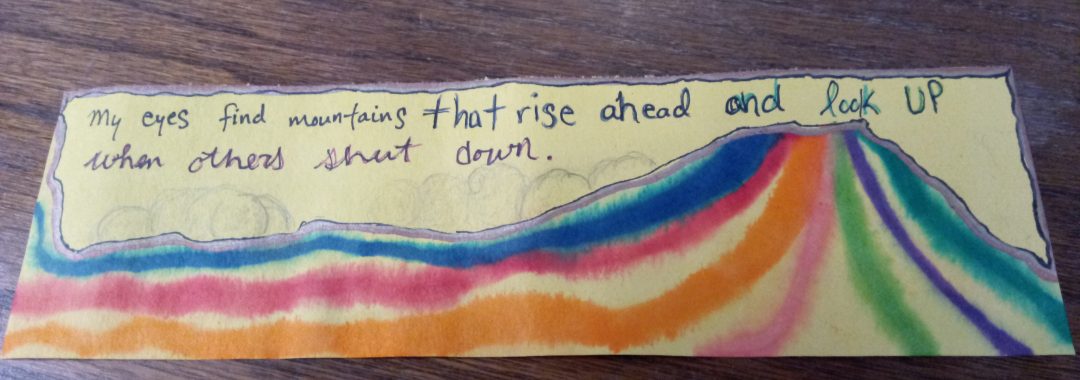 My eyes find mountains that rise ahead and look UP
when others shut down.